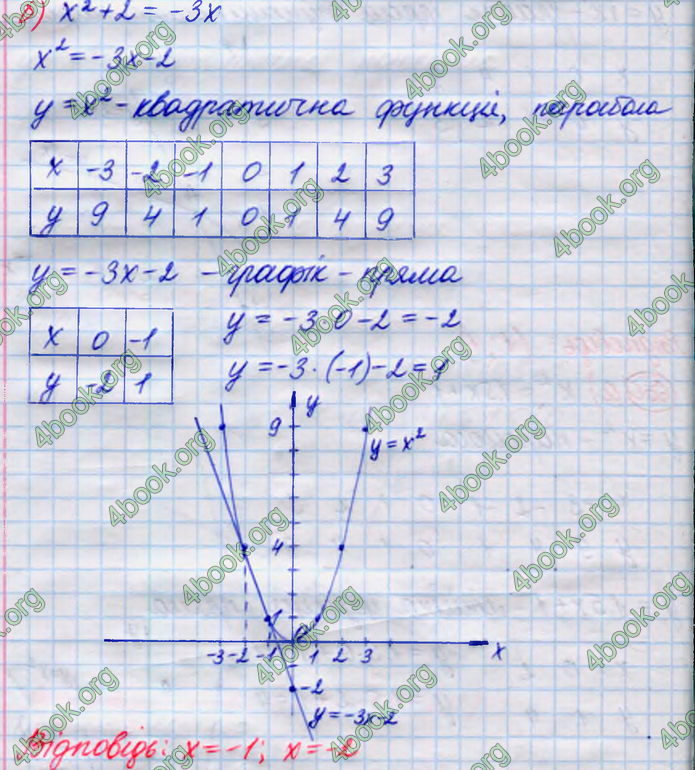 x² + 2 = -3x
x² = -3x - 2
y = x² - квадратична функція, парабола
x -3 -2 -1 0 1 2 3
y 9 4 1 0 1 4 9
y = -3x - 2 - графік - пряма
x 0 -1
y -2 1
y = -3 · 0 - 2 = -2
y = -3 · (-1) - 2 = 1
y
9
y = x²
4
1
0
-3 -2 -1 1 2 3 x
-2
y = -3x - 2
Відповідь: x = -1; x = -2
4book.org